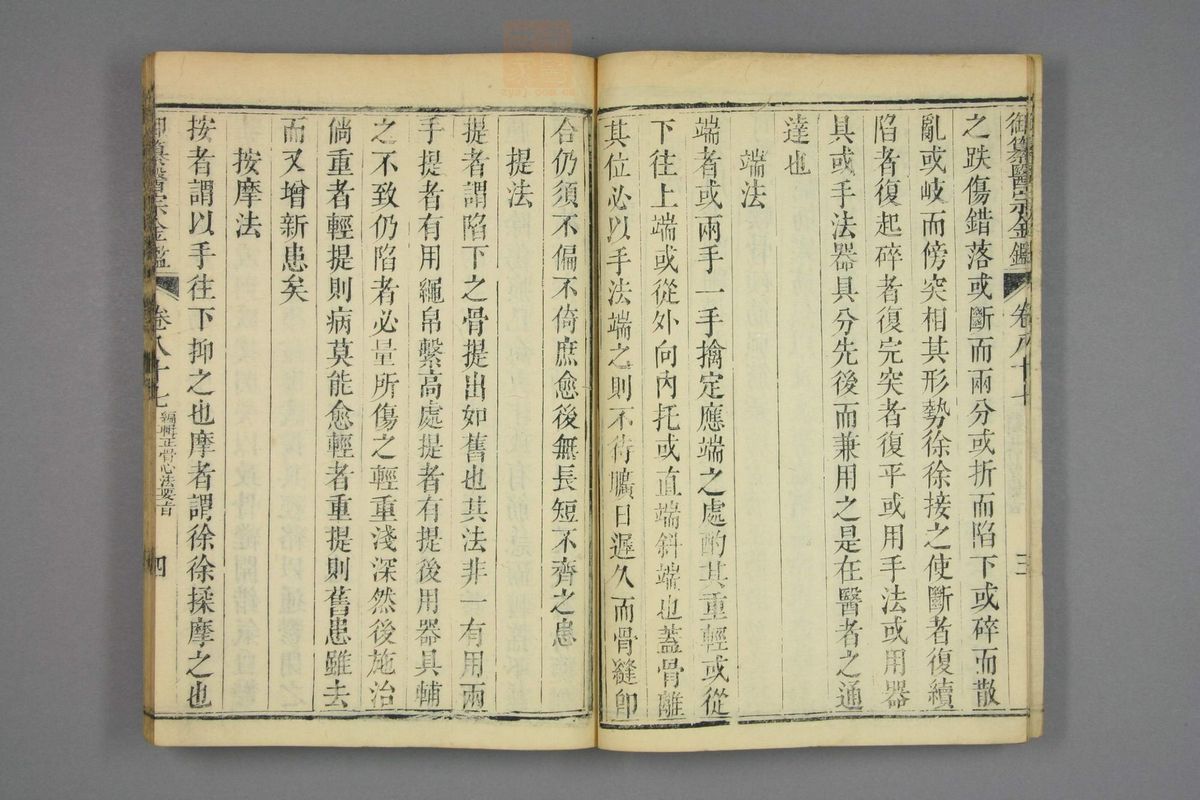 御纂醫宗金鑑 卷八十七 三
之跌傷錯落或斷而兩分或折而陷下或碎而散
亂或岐而傍突相其形勢徐徐接之使斷者復續
陷者復起碎者復完突者復平或用手法或用器
具或手法器具分先後而兼用之是在醫者之通
達也
端法
端者或兩手一手擒定應端之處酌其重輕或從
下往上端或從外向內托或直端斜端也蓋骨離
其位必以手法端之則不待曠日遲久而骨縫即
合仍須不偏不倚庶愈後無長短不齊之患
提法
提者謂陷下之骨提出如舊也其法非一有用兩
手提者有用繩帛繫高處提者有提後用器具輔
之不致仍陷者必量所傷之輕重淺深然後施治
倘重者輕提則病莫能愈輕者重提則舊患雖去
而又增新患矣
按摩法
按者謂以手往下抑之也摩者謂徐徐揉摩之也
御纂醫宗金鑑 卷八十七 編輯正骨心法要旨 四